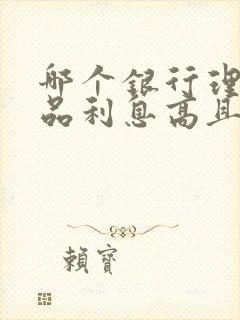 哪个银行理
品利息高且
賴寶